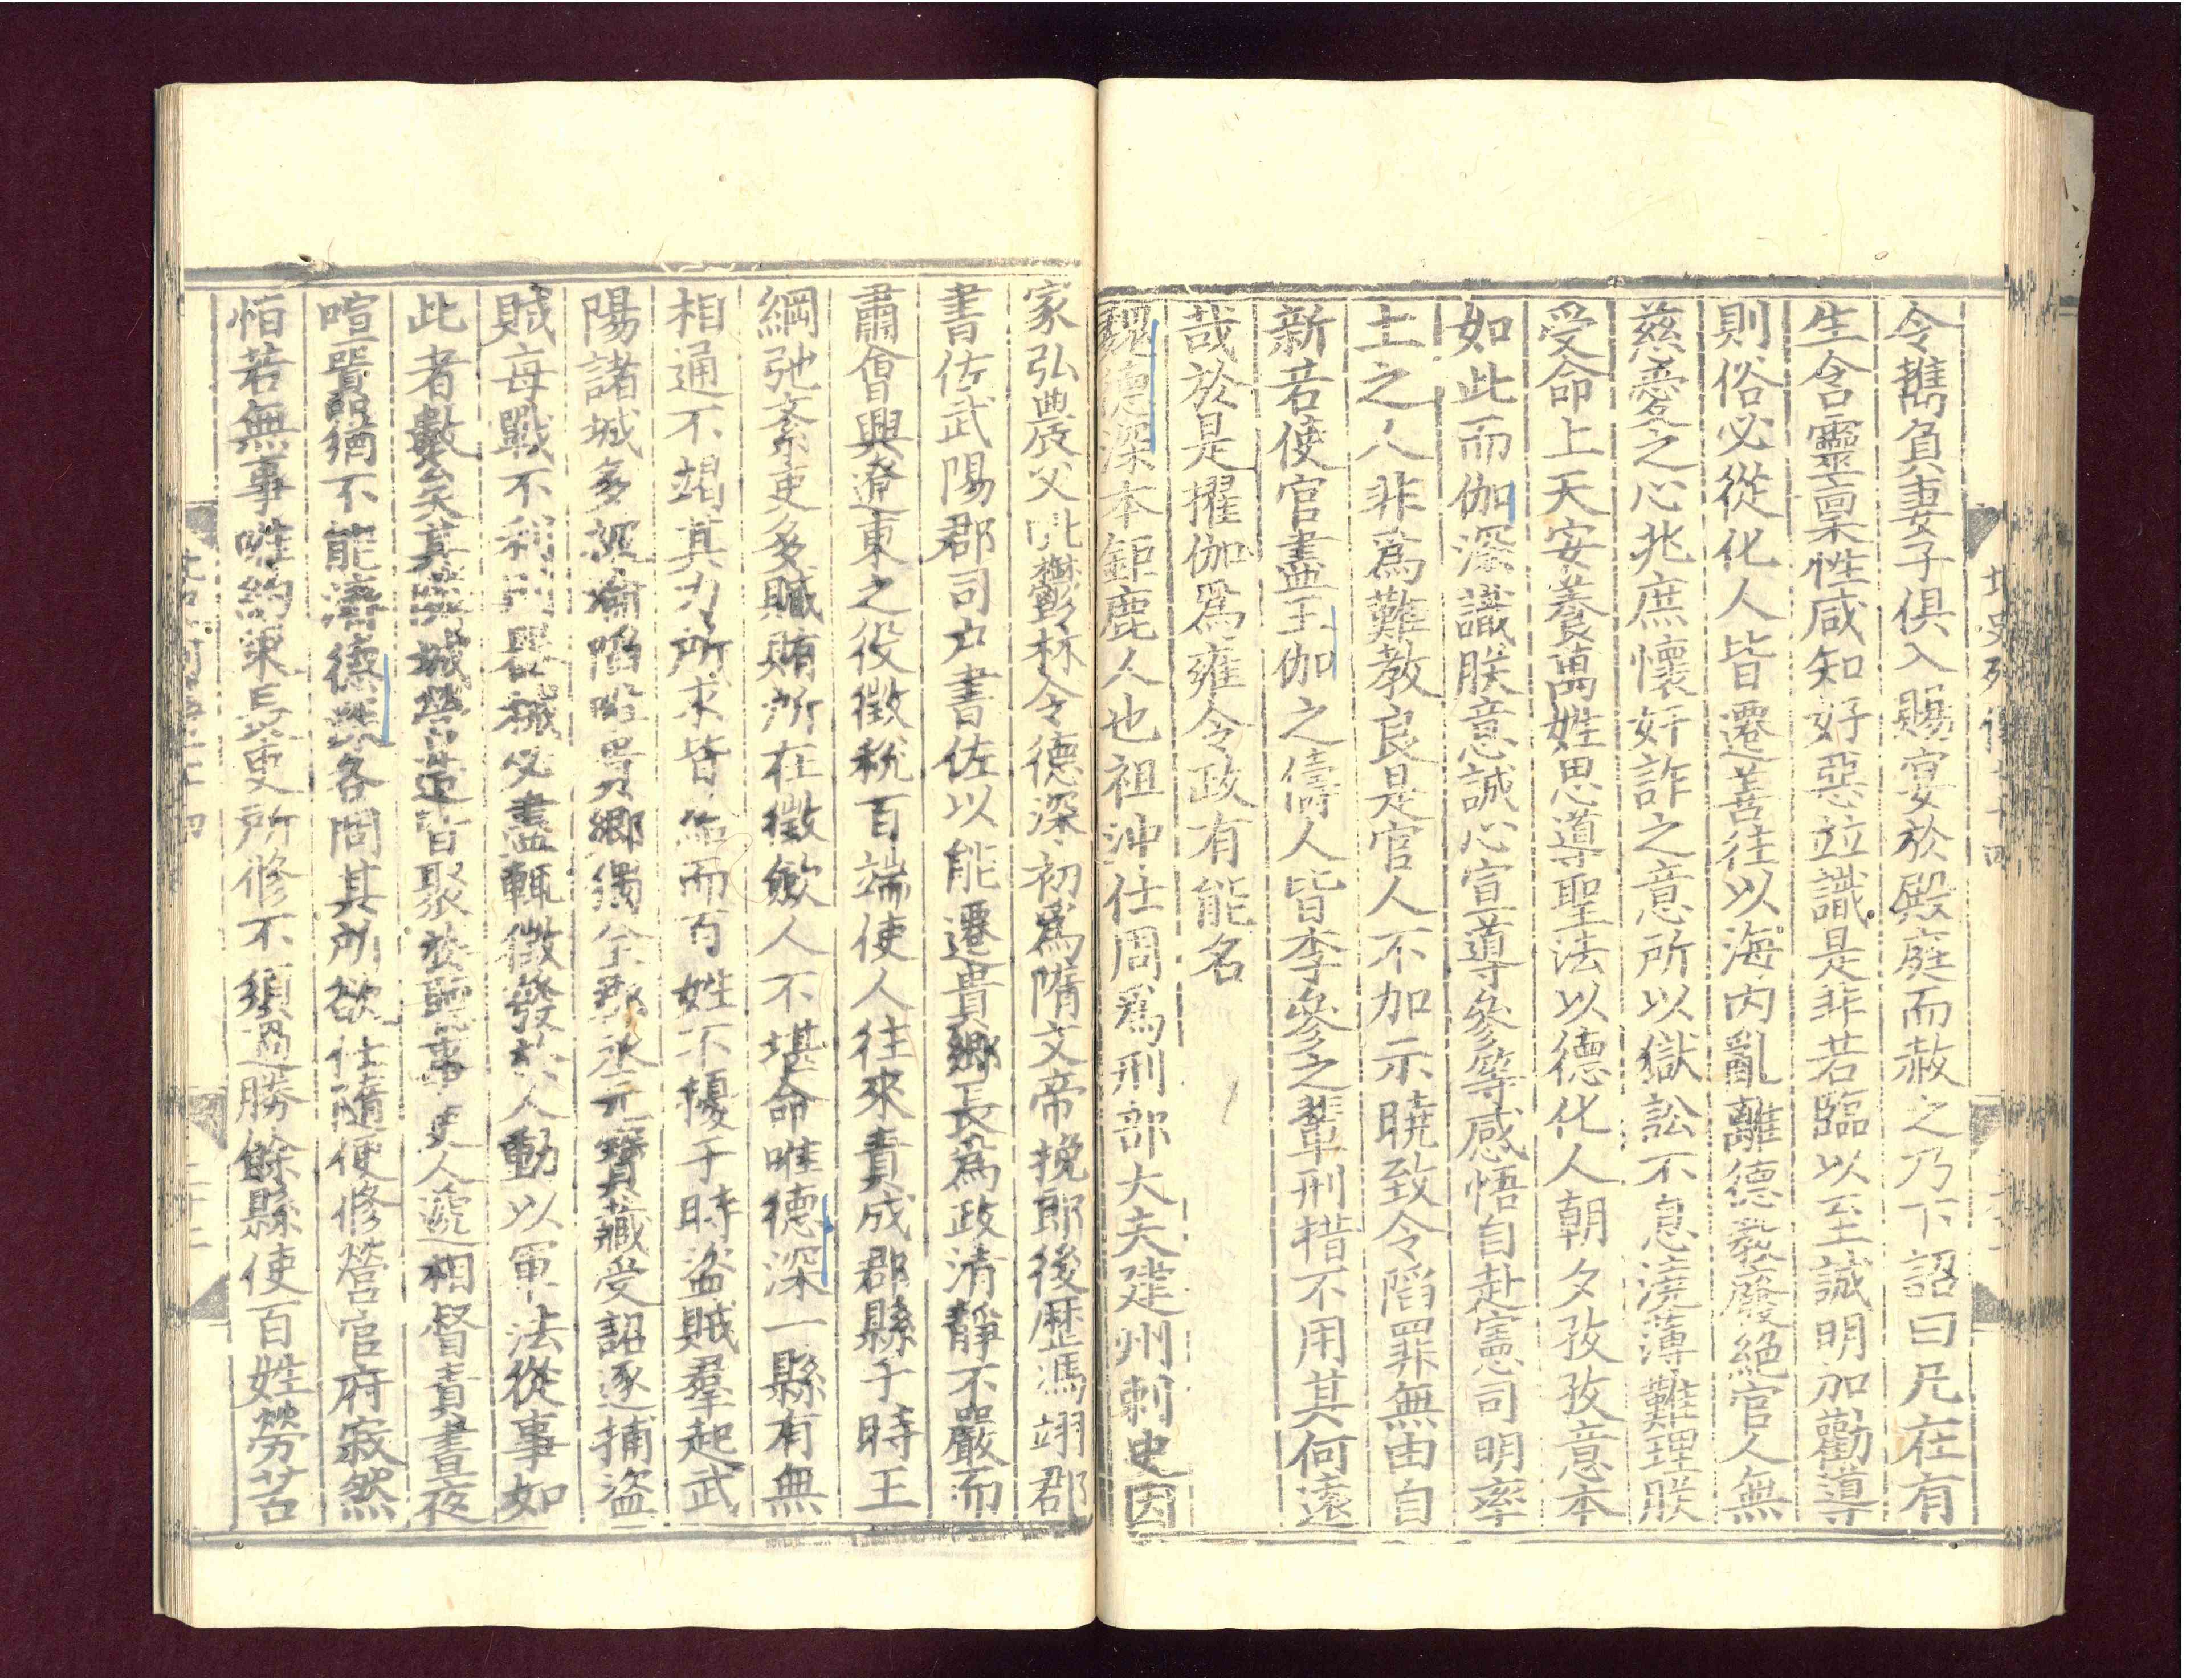 北史列傳七十四
令攜負妻子俱入賜宴於殿庭而赦之乃下詔曰凡在有
生含靈稟性咸知好惡並識是非若臨以至誠明加勸導
則俗必從化人皆遷善往以海內亂離德教廢絕官人無
慈愛之心兆庶懷奸詐之意所以獄訟不息澆薄難理朕
受命上天安養萬姓思導聖法以德化人朝夕孜孜意本
如此而伽深識朕意誠心宣導參等感悟自赴憲司明率
土之人非爲難教良是官人不加示曉致令陷罪無由自
新若使官盡王伽之儔人皆李參之輩刑措不用其何遠
哉於是擢伽爲雍令政有能名
魏德深本鉅鹿人也祖沖仕周爲刑部大夫建州刺史因
家弘農父毗鬱林令德深初爲隋文帝挽郎後歷馮翊郡
書佐武陽郡司戶書佐以能遷貴鄉長爲政清靜不嚴而
肅會興遼東之役徵稅百端使人往來責成郡縣于時王
綱弛紊吏多贓賄所在徵斂人不堪命唯德深一縣有無
相通不竭其力所求皆給而百姓不擾于時盜賊羣起武
陽諸城多被淪陷唯貴鄉獨全郡丞元寶藏受詔逐捕盜
賊每戰不利則器械必盡輒徵發於人動以軍法從事如
此者數矣其鄰城營造皆聚於聽事吏人遞相督責晝夜
喧囂猶不能濟德深各問其所欲任隨便修營官府寂然
恒若無事唯約束長吏所修不須過勝餘縣使百姓勞苦